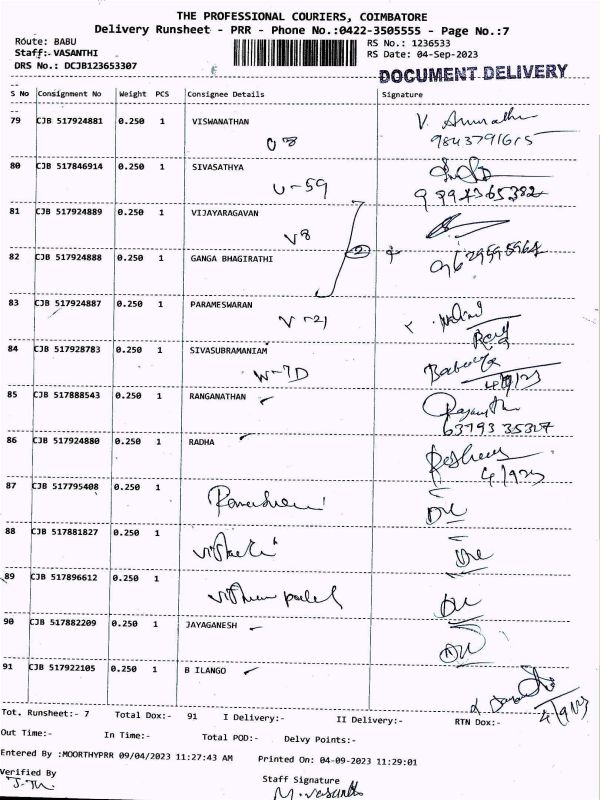 THE PROFESSIONAL COURIERS, COIMBATORE
Delivery Runsheet - PRR - Phone No.:0422-3505555 - Page No.:7
Route: BABU
RS No.: 1236533
Staff:- VASANTHI
RS Date: 04-Sep-2023
DRS No.: DCJB123653307
DOCUMENT DELIVERY
S No Consignment No Weight PCS Consignee Details Signature
79 CJB 517924881 0.250 1 VISWANATHAN V. Anuratha
U 8 9843791615
80 CJB 517846914 0.250 1 SIVASATHYA
U-59
81 CJB 517924889 0.250 1 VIJAYARAGAVAN
V8
82 CJB 517924888 0.250 1 GANGA BHAGIRATHI
2
83 CJB 517924887 0.250 1 PARAMESWARAN
V-21
84 CJB 517928783 0.250 1 SIVASUBRAMANIAM
W-7D 4/9/23
85 CJB 517888543 0.250 1 RANGANATHAN
63793 35307
86 CJB 517924880 0.250 1 RADHA
4/9/23
87 CJB 517795408 0.250 1
88 CJB 517881827 0.250 1
89 CJB 517896612 0.250 1
90 CJB 517882209 0.250 1 JAYAGANESH
91 CJB 517922105 0.250 1 B ILANGO
4/9/23
Tot. Runsheet:- 7 Total Dox:- 91 I Delivery:- II Delivery:- RTN Dox:-
Out Time:- In Time:- Total POD:- Delvy Points:-
Entered By :MOORTHYPRR 09/04/2023 11:27:43 AM Printed On: 04-09-2023 11:29:01
Verified By Staff Signature
M. Vasanthi